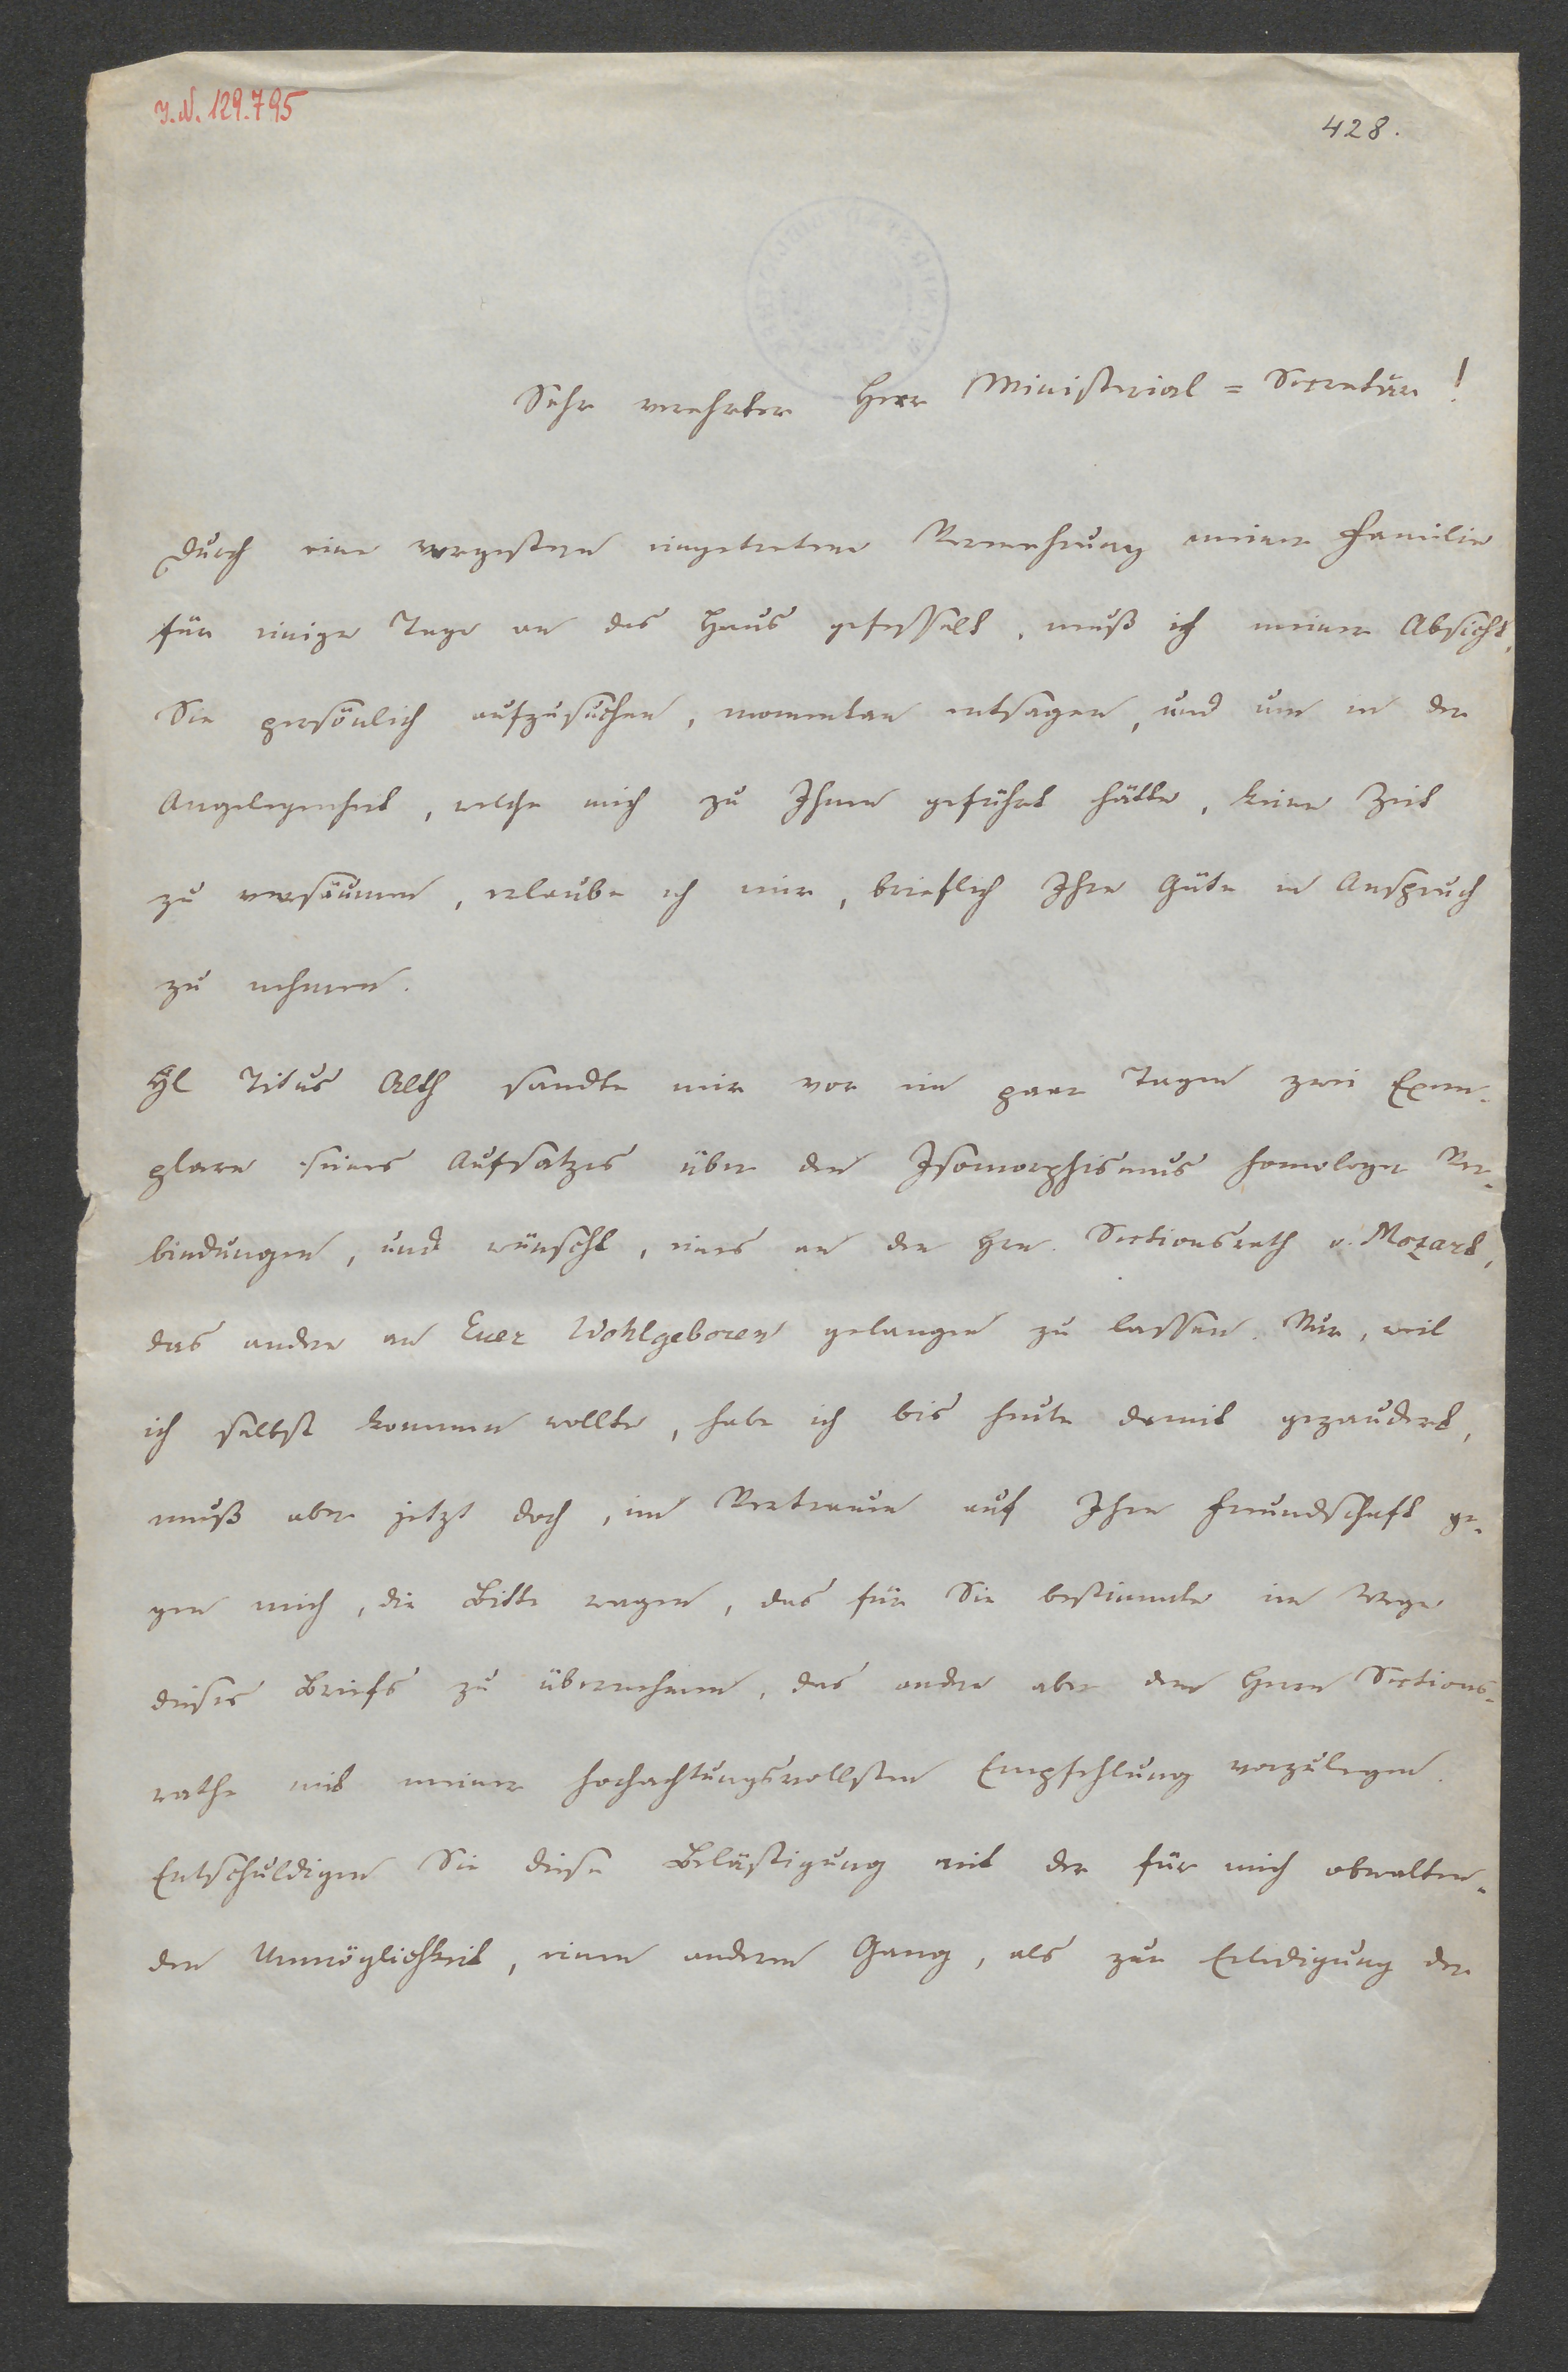 I.N. 129.795
428.
Sehr verehrter Herr Ministerial=Secretär!
Durch eine vorgestern eingetretene Vermehrung meiner Familie
für einige Tage an das Haus gefesselt, muß ich meiner Absicht,
Sie persönlich aufzusuchen, momentan entsagen, und um in der
Angelegenheit, welche mich zu Ihnen geführt hätte, keine Zeit
zu versäumen, erlaube ich mir, brieflich Ihre Güte in Anspruch
zu nehmen.
Titus Alth sandte mir vor ein paar Tagen zwei Exem-
plare seines Aufsatzes über den Isomorphismus homologer Ver-
bindungen, und wünscht, eines an den Hrn. Sectionsrath v. Mozart,
das andere an Euer Wohlgeboren gelangen zu lassen. Nur, weil
ich selbst kommen wollte, habe ich bis heute damit gezaudert,
muß aber jetzt doch, im Vertrauen auf Ihre Freundschaft ge-
gen mich, die Bitte wagen, das für Sie bestimmte im Wege
dieses Briefs zu übernehmen, das andere aber dem Herrn Sections-
rathe mit meiner hochachtungsvollsten Empfehlung vorzulegen.
Entschuldigen Sie diese Belästigung mit der für mich obwalten-
den Unmöglichkeit, einen anderen Gang, als zur Erledigung der